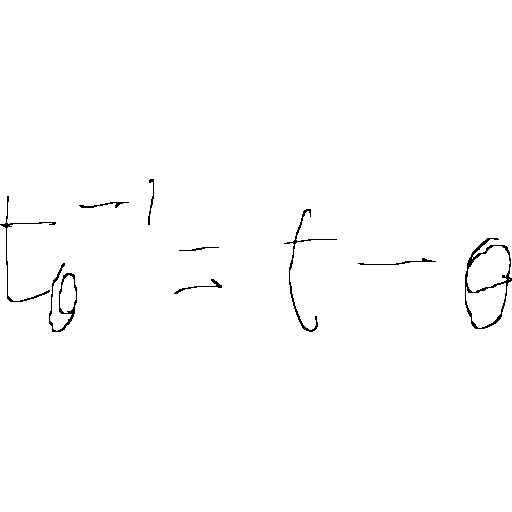 t₀⁻¹ = t − θ